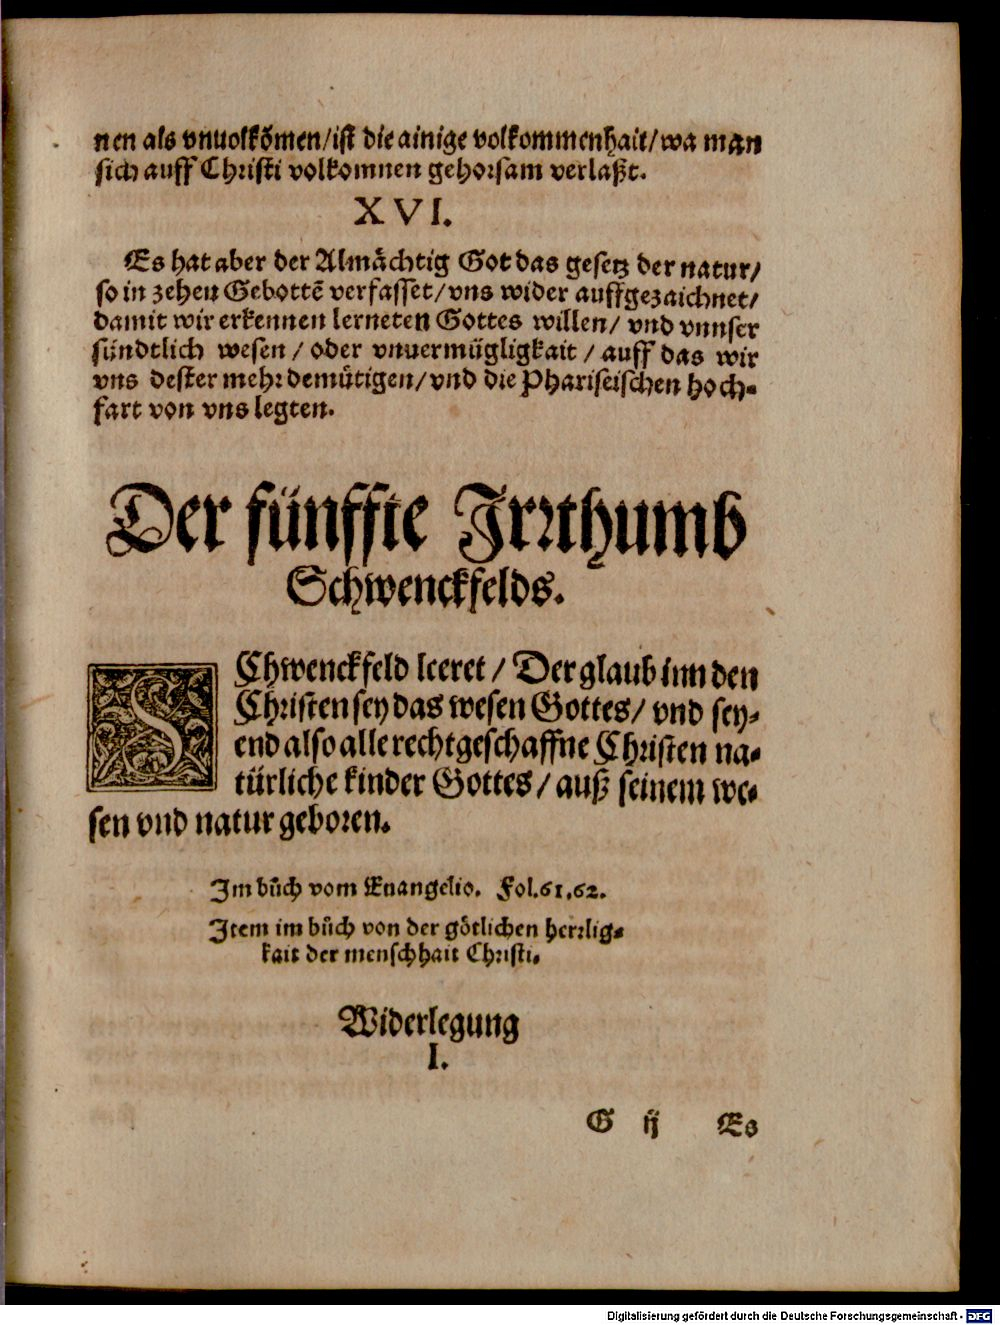 nen als vnuolkõmen/ist die ainige volkommenhait/wa man
sich auff Christi volkomnen gehorsam verlaßt.
XVI.
Es hat aber der Almächtig Got das gesetz der natur/
so in zehen Gebottẽ verfasset/vns wider auffgezaichnet/
damit wir erkennen lerneten Gottes willen/ vnd vnnser
sündtlich wesen / oder vnuermügligkait / auff das wir
vns dester mehr demütigen/vnd die Phariseischen hoch-
fart von vns legten.
Der fünffte Irrthumb
Schwenckfelds.
SChwenckfeld leeret / Der glaub inn den
Christen sey das wesen Gottes/ vnd sey-
end also alle rechtgeschaffne Christen na-
türliche kinder Gottes/ auß seinem we-
sen vnd natur geboren.
Im bůch vom Euangelio. Fol.61.62.
Item im bůch von der götlichen herrlig-
kait der menschhait Christi.
Widerlegung
I.
G ij Es
Digitalisierung gefördert durch die Deutsche Forschungsgemeinschaft - DFG